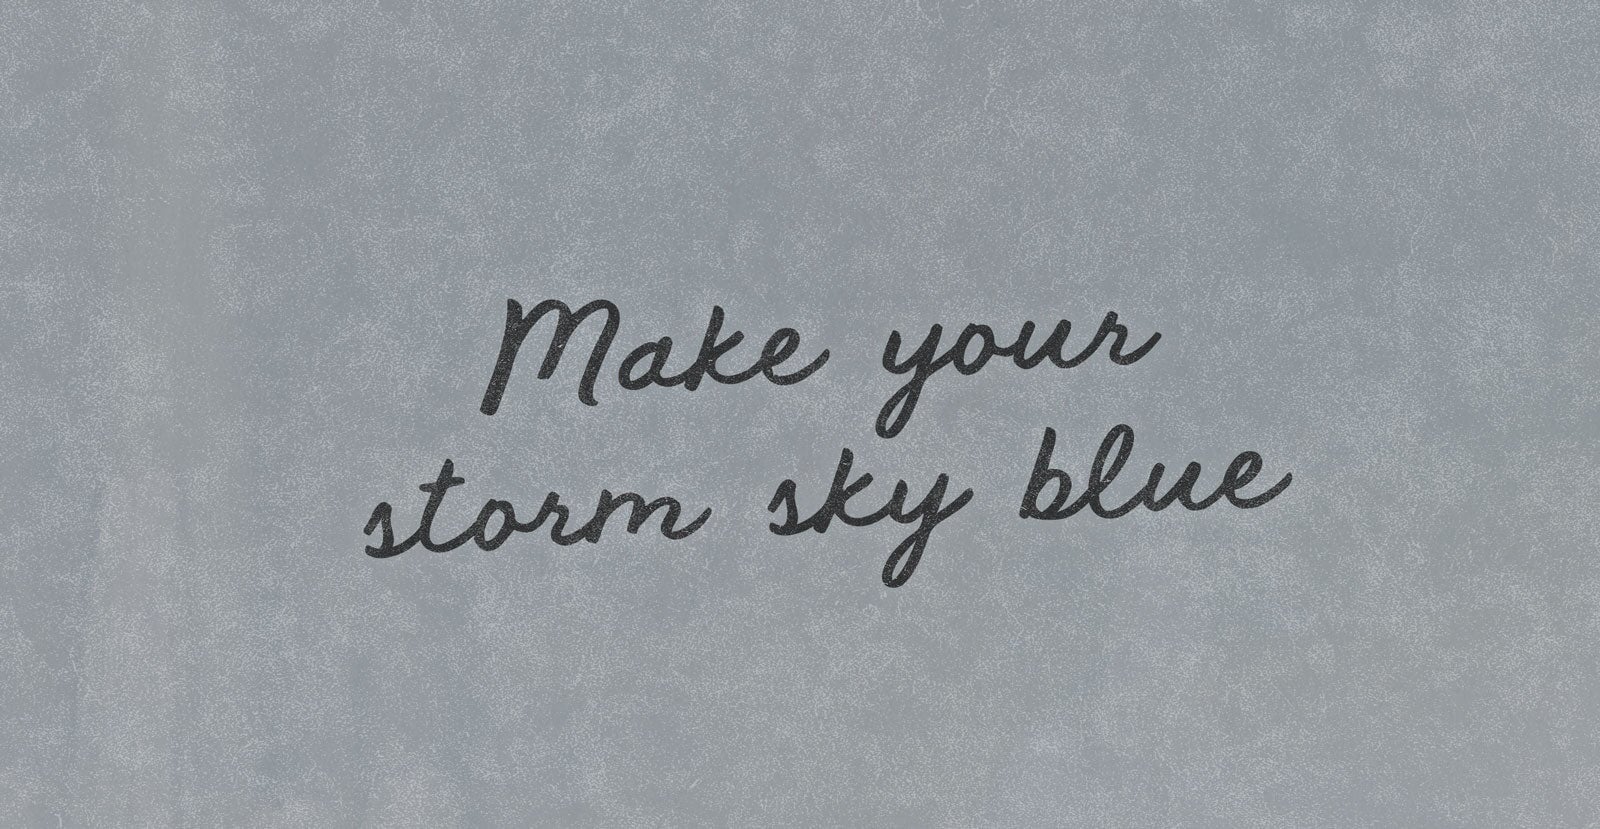 Make your
storm sky blue